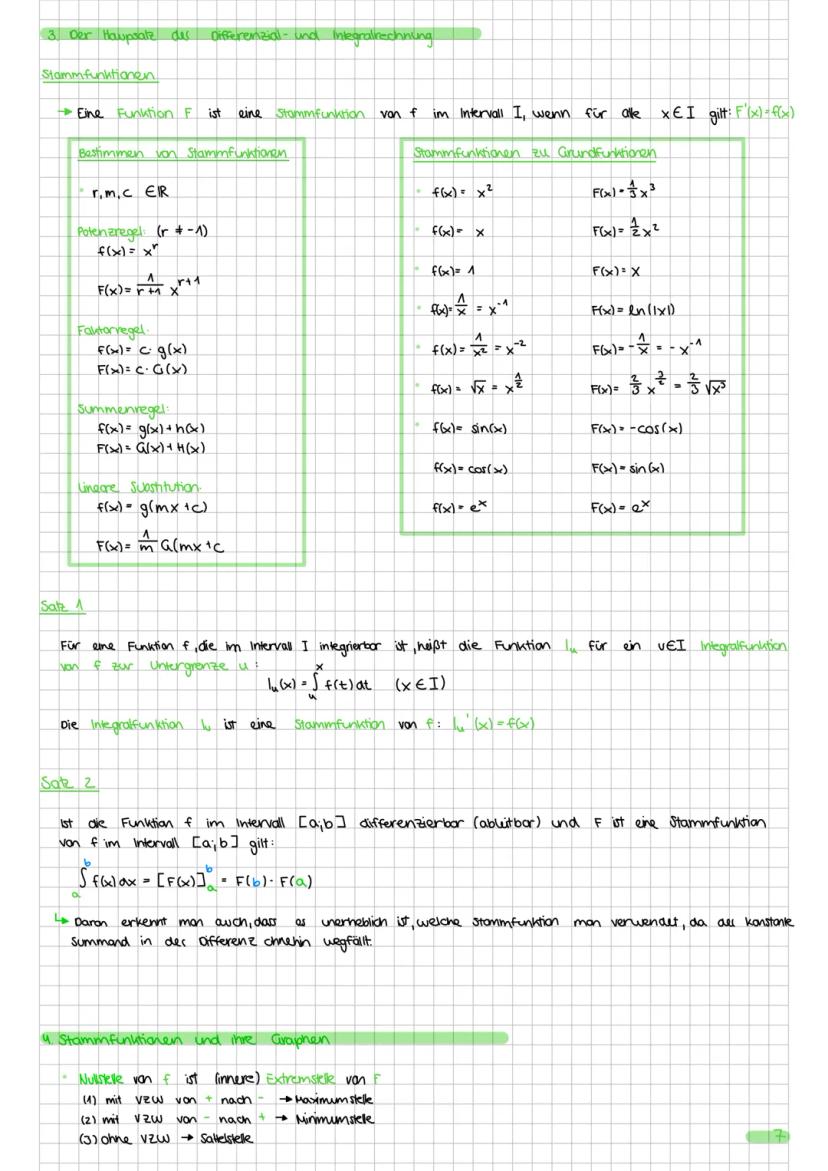 3. Der Haupsatz der Differenzial- und Integralrechnung
Stammfunktionen
→ Eine Funktion F ist eine Stammfunktion von f im Intervall I, wenn für alle x∈I gilt: F'(x)=f(x)
Bestimmen von Stammfunktionen
• r,m,c ∈ℝ
Potenzregel: (r ≠ -1)
f(x) = x^r
F(x) = 1/(r+1) x^(r+1)
Faktorregel:
f(x) = c · g(x)
F(x) = c · G(x)
Summenregel:
f(x) = g(x) + h(x)
F(x) = G(x) + H(x)
Lineare Substitution:
f(x) = g(mx +c)
F(x) = 1/m G(mx +c
Stammfunktionen zu Grundfunktionen
• f(x) = x² F(x) = 1/3 x³
• f(x) = x F(x) = 1/2 x²
• f(x) = 1 F(x) = x
• f(x) = 1/x = x^-1 F(x) = ln(|x|)
• f(x) = 1/x² = x^-2 F(x) = - 1/x = - x^-1
• f(x) = √x = x^(1/2) F(x) = 2/3 x^(3/2) = 2/3 √x³
• f(x) = sin(x) F(x) = -cos(x)
f(x) = cos(x) F(x) = sin(x)
f(x) = e^x F(x) = e^x
Satz 1
Für eine Funktion f, die im Intervall I integrierbar ist, heißt die Funktion I_u für ein u∈I Integralfunktion
von f zur Untergrenze u:
I_u(x) = ∫_u^x f(t) dt (x ∈ I)
Die Integralfunktion I_u ist eine Stammfunktion von f: I_u'(x) = f(x)
Satz 2
Ist die Funktion f im Intervall [a;b] differenzierbar (ableitbar) und F ist eine Stammfunktion
von f im Intervall [a;b] gilt:
∫_a^b f(x) dx = [F(x)]_a^b = F(b) - F(a)
↳ Daran erkennt man auch, dass es unerheblich ist, welche Stammfunktion man verwendet, da der konstante
Summand in der Differenz ohnehin wegfällt.
4. Stammfunktionen und ihre Graphen
• Nullstelle von f ist (innere) Extremstelle von F
(1) mit VZW von + nach - → Maximumstelle
(2) mit VZW von - nach + → Minimumstelle
(3) ohne VZW → Sattelstelle
7